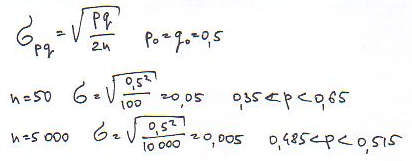 σpq = √(pq/2n)  p₀ = q₀ = 0,5
n=50  σ = √(0,5²/100) = 0,05  0,35 < p < 0,65
n=5 000  σ = √(0,5²/10 000) = 0,005  0,485 < p < 0,515